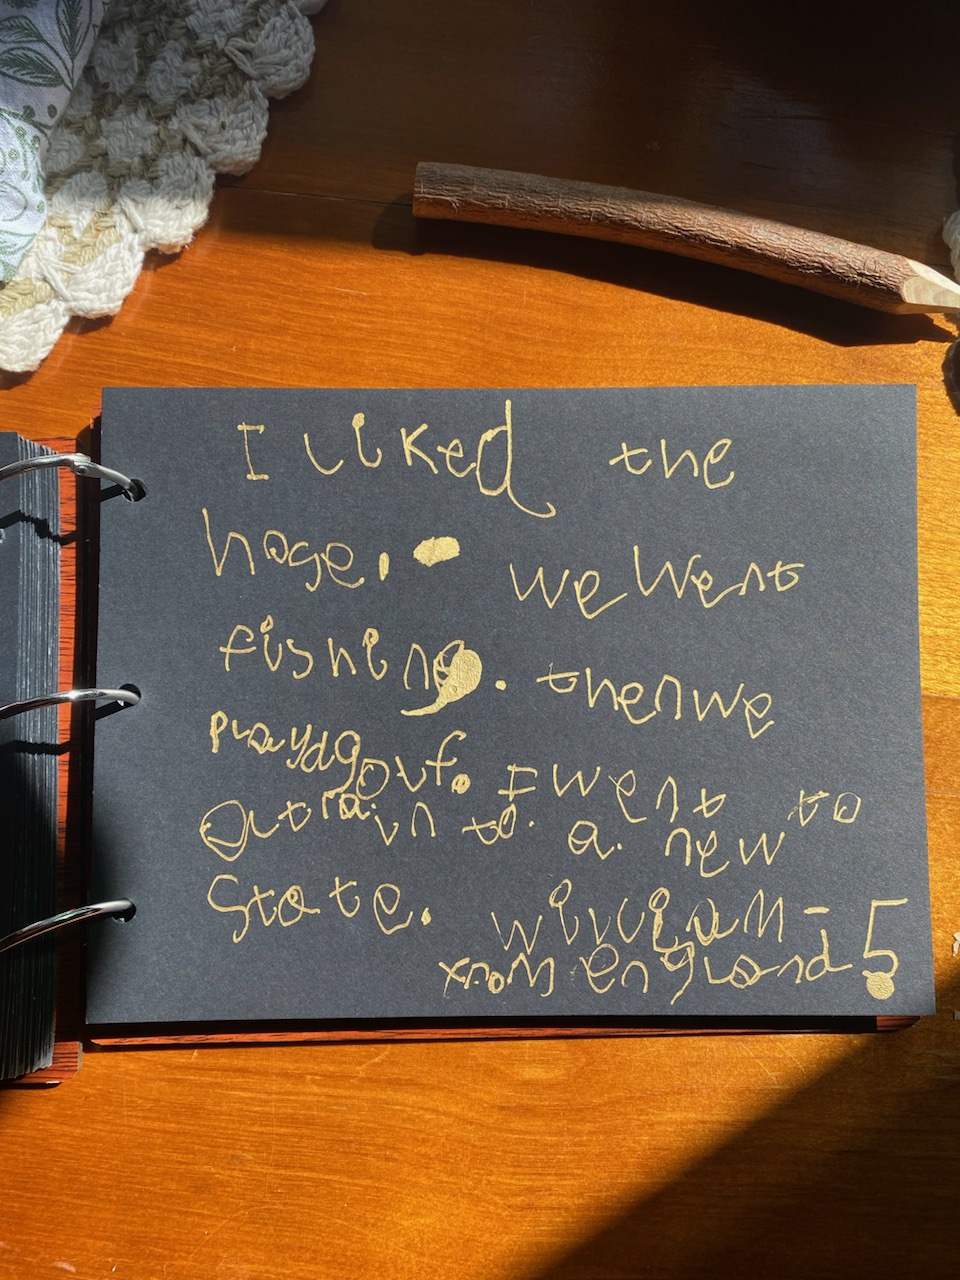 I liked the
hose. we went
fishing. then we
playd golf. I went to
on a train to a new
State. william - 5
from england